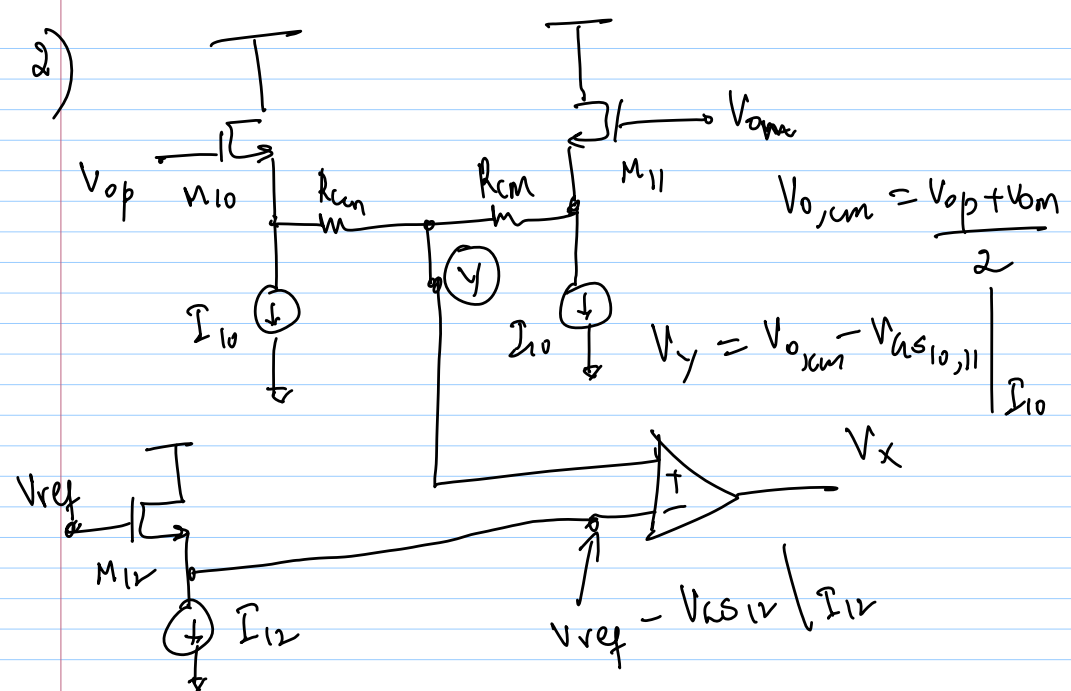 2)
Vop
M10
Rcm
Rcm
M11
Vom
Vo,cm = Vop + Vom
2
Y
I10
I10
Vy = Vo,cm - VGS10,11 | I10
Vx
Vref
M12
+
-
I12
Vref - VGS12 | I12